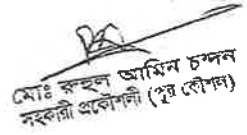 মোঃ রুহুল আমিন চন্দন
সহকারী প্রকৌশলী (পুর কৌশল)